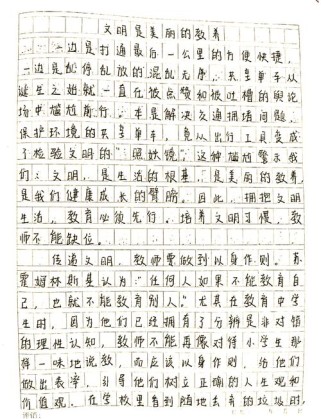 文明是美丽的教养
一边是打通最后一公里的方便快捷，
一边是乱停乱放的混乱无序。共享单车从
诞生之始就一直在被点赞和被吐槽的舆论
场中尴尬前行。本是解决交通拥堵问题、
保护环境的共享单车，竟从出行工具变成
了检验文明的“照妖镜”，这种尴尬警示我
们：文明，是生活的根基，是美丽的教养，
是我们健康成长的臂膀。因此，拥抱文明
生活，教育必须先行，培养文明习惯，教
师不能缺位。
传递文明，教师要做到以身作则。苏
霍姆林斯基认为：“任何人如果不能教育自
己，也就不能教育别人”尤其在教育中学
生时，因为他们已经拥有了分辨是非对错
的理性认知，教师不能再像对待小学生那
样一味地说教，而应该以身作则，给他们
做出表率，引导他们树立正确的人生观和
价值观。在学校里看到随地去弃的垃圾时